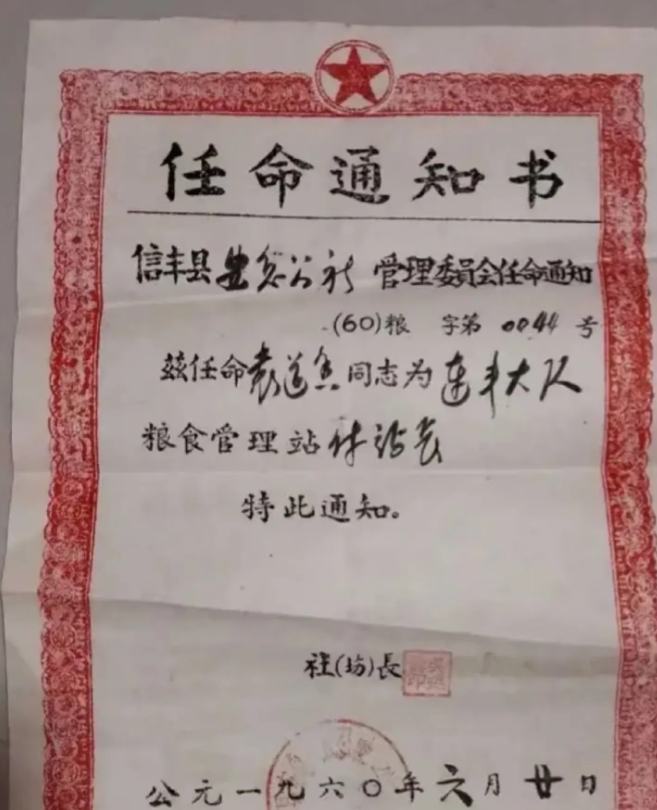 任命通知书
信丰县 公社 管理委员会任命通知
(60)粮 字第 0044 号
兹任命袁 同志为 大队
粮食管理站 站长
特此通知。
社(场)長
公元一九六〇年六月廿日